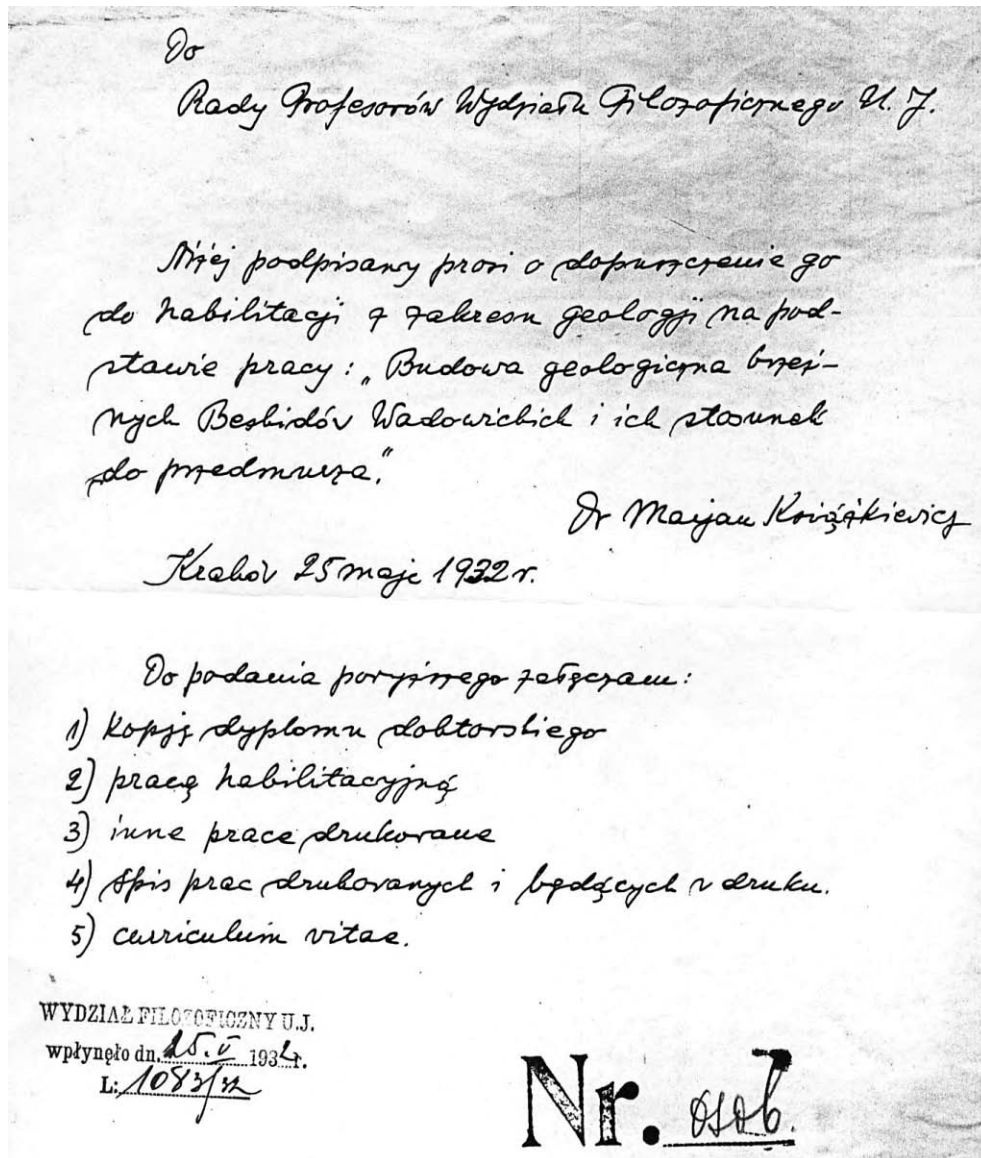 Do
Rady Profesorów Wydziału Filozoficznego U. J.
Niżej podpisany prosi o dopuszczenie go
do habilitacji z zakresu geologji na pod-
stawie pracy: „Budowa geologiczna brzeż-
nych Beskidów Wadowickich i ich stosunek
do przedmurza".
Dr Marjan Książkiewicz
Kraków 25 maja 1932 r.
Do podania powyższego załączam:
1) Kopję dyplomu doktorskiego
2) pracę habilitacyjną
3) inne prace drukowane
4) Spis prac drukowanych i będących w druku.
5) curriculum vitae.
WYDZIAŁ FILOZOFICZNY U.J.
wpłynęło dn. 25.V 1932 r.
L: 1083/32
Nr. osob.